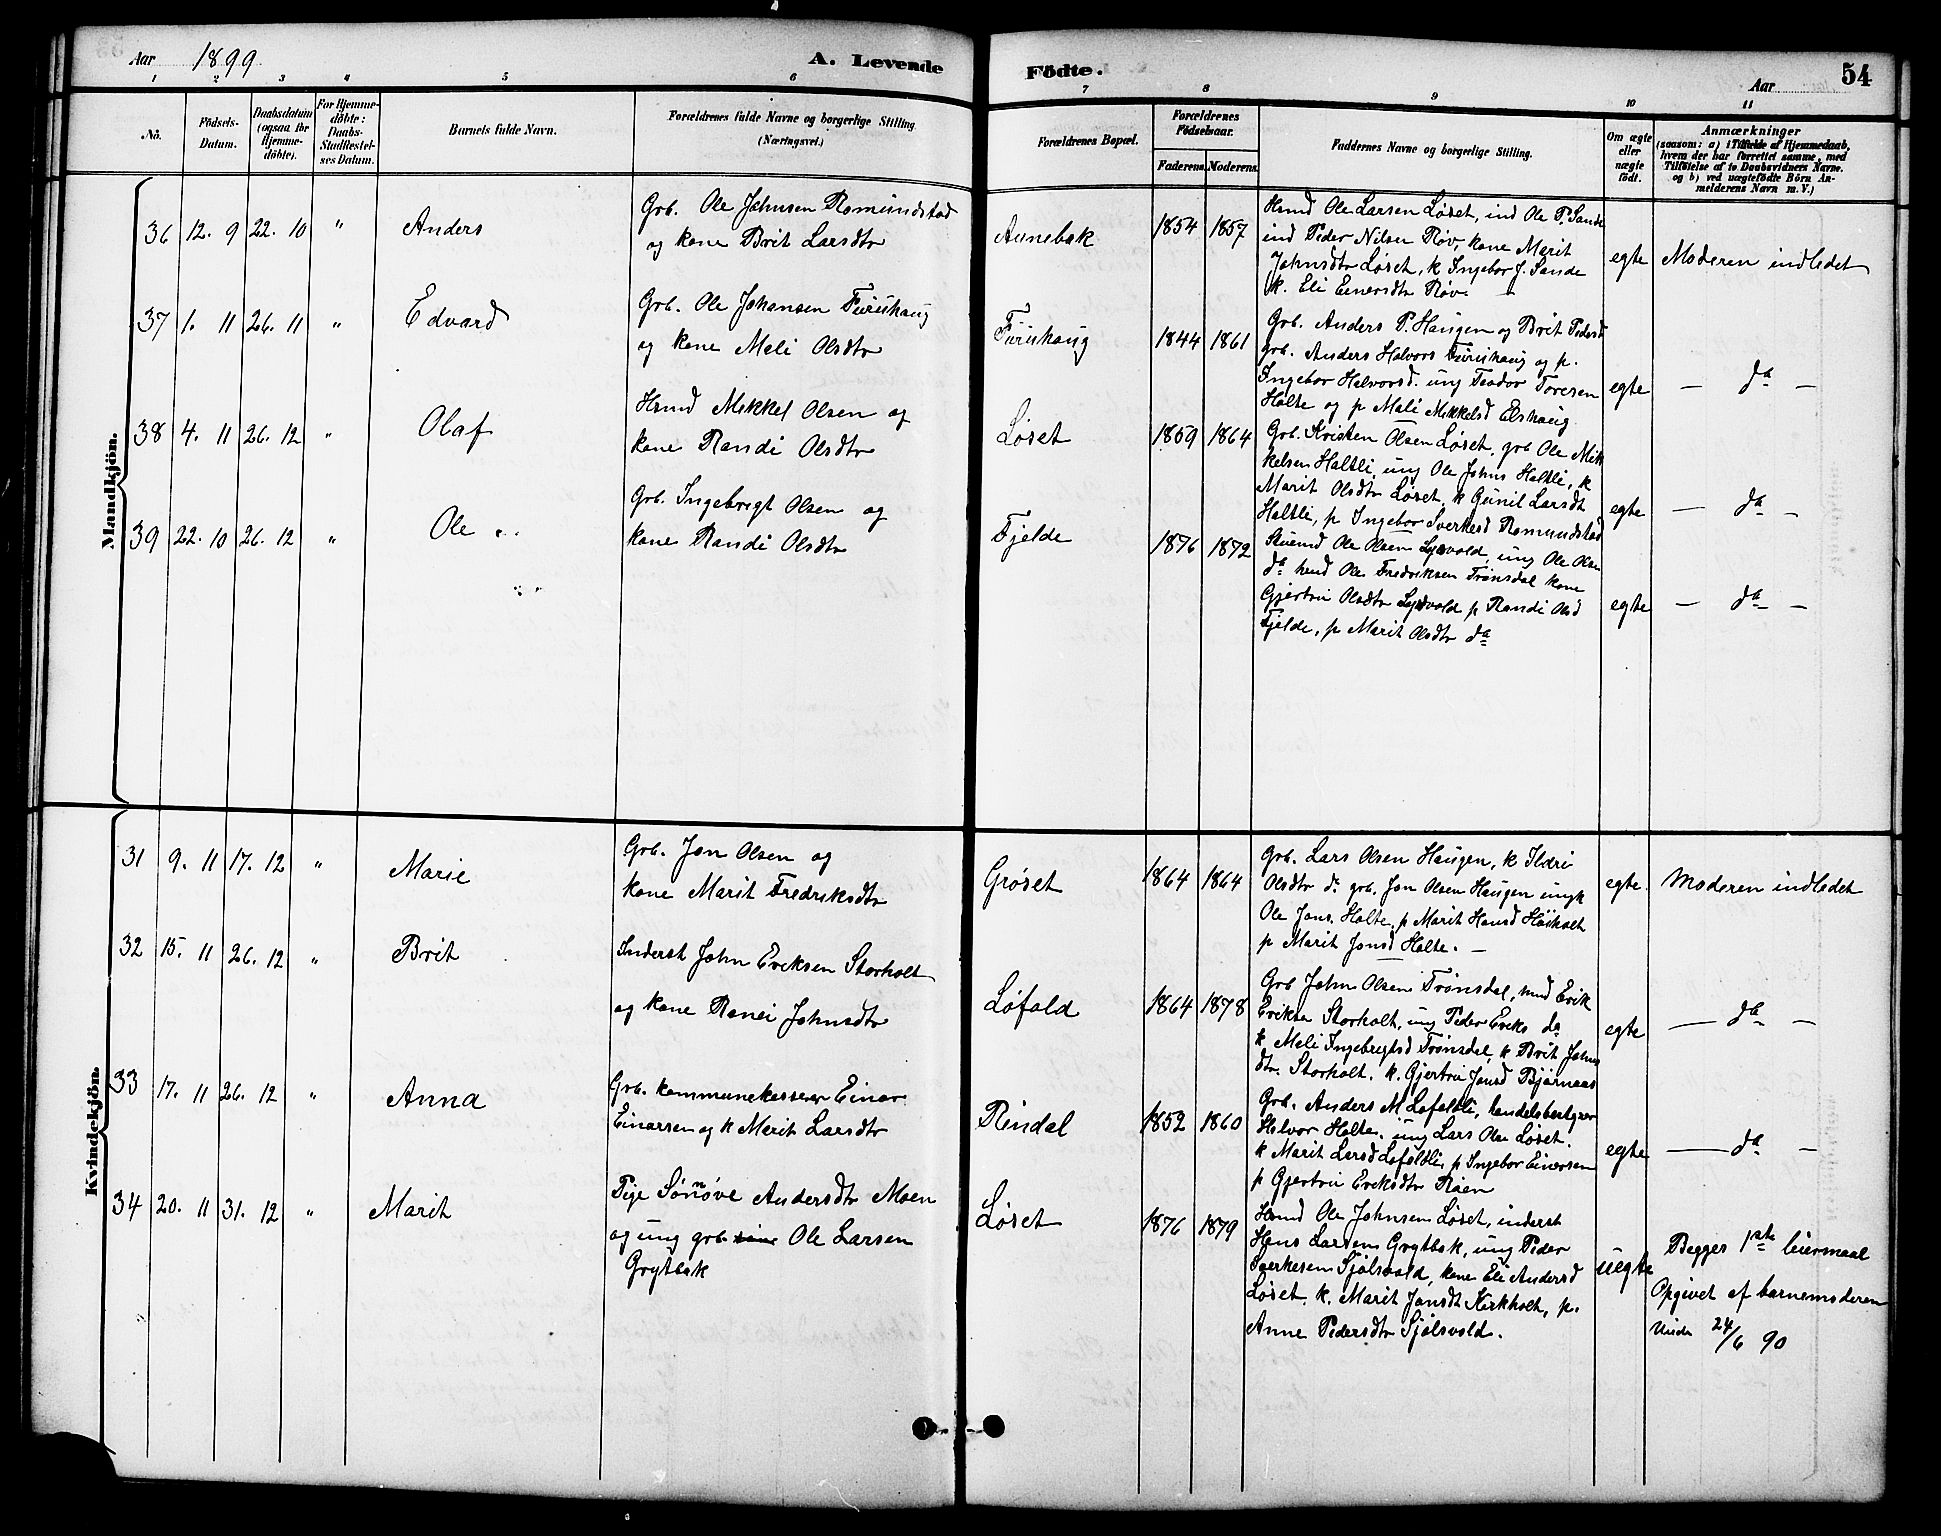 Aar 1899 A. Levende Födte. Aar 54
1 2 3 4 5 6 7 8 9 10 11
No. Födsels-Datum. Daabsdatum (ogsaa for Hjemmedöbte). For Hjemmedöbte: Daabs-Stadfæstelses Datum. Barnets fulde Navn. Forældrenes fulde Navne og borgerlige Stilling (Næringsvei.) Forældrenes Bopæl. Forældrenes Födselsaar. Faderens. Moderens. Faddernes Navne og borgerlige Stilling. Om ægte eller uægte födt. Anmærkninger (saasom: a) i Tilfælde af Hjemmedaab, hvem der har forrettet samme, med Tilföielse af to Daabsvidners Navne. og b) ved uægtefödte Börn Anmelderens Navn m. V.)
Mandkjön.
36 12. 9 22. 10 " Anders
Grb. Ole Johnsen Romundstad
og kone Brit Larsdtr
Aunebak 1854 1857
Hsmd Ole Larsen Løset, ind Ole P. Sande
ind Peder Nilsen Røv, kone Marit
Johnsdtr Løset, k Ingebor J. Sande
k. Eli Einersdtr Røv. —
egte Moderen indledet
37 1. 11 26. 11 " Edvard
Grb. Ole Johansen Furuhaug
og kone Mali Olsdtr
Furuhaug 1844 1861
Grb. Anders P. Haugen og Brit Pedersd
grb. Anders Halvors Furuhaug og p.
Ingebor Halvorsd. ung Teodor Toresen
Halte og p Mali Mikkelsd Elshaug
egte — da —
38 4. 11 26. 12 " Olaf
Hsmd Mikkel Olsen og
kone Randi Olsdtr
Løset 1859 1864
Grb. Kristen Olsen Løset, grb Ole Mik
kelsen Haltli, ung Ole Johns Haltli, k
Marit Olsdtr Løset, k Gunil Larsdt
Haltli, p Ingebor Sverkesd Romundstad
egte — da —
39 22. 10 26. 12 " Ole
Grb. Ingebrigt Olsen og
kone Randi Olsdtr
Fjelde 1876 1872
Ole Olsen Lysvold, ung Ole Olsen
da hsmd Ole Fredriksen Trønsdal kone
Gjertru Olsdtr Lysvold p Randi Olsd
Fjelde, p Marit Olsdtr da
egte — da —
Kvindekjön.
31 9. 11 17. 12 " Marie
Grb. Jon Olsen og
kone Marit Fredriksdtr
Grøset 1864 1864
Grb. Lars Olsen Haugen, k Ildri
Olsdtr do grb. Jon Olsen Haugen ungk
Ole Jons. Halte, p Marit Hansd Høiholt
p Marit Jonsd Halte. —
egte. Moderen indledet
32 15. 11 26. 12 " Brit
Inderst John Eriksen Storholt
og kone Johnsdtr
Løfald 1864 1878
Grb John Olsen Trønsdal, hsmd Erik
Eriksen Storholt, ung Peder Eriks da
k Mali Ingebrigtsd Trønsdal, k Brit Johns
dtr. Storholt. k. Gjertru Jonsd Bjørnaas
egte — da —
33 17. 11 26. 12 " Anna
Grb. kommunekasserer Einar
Einarsen og k Marit Larsdtr
Rindal 1852 1860
Grb. Anders M Løfaldli, handelsbestyrer
Halvor Halte. ung Lars Olsen Løset.
k Marit Larsd Løfaldli, p Ingebor Einersen
p Gjertru Eriksdtr Røen
egte — da —
34 20. 11 31. 12 " Marit
Pige Sønnøve Andersdtr Moen
og ung grb Ole Larsen
Grytbak
Løset 1876 1879
Hsmd Ole Johnsen Løset, inderst
Hans Larsen Grytbak, ung Peder
Sverkesen Sjølsvold, kone Eli Andersd
Løset, k. Marit Jonsdt Kirkholt, p.
Anne Pedersdtr Sjølsvold.
uegte Begges 1ste leiermaal
Opgivet af barnemoderen
24/6 90